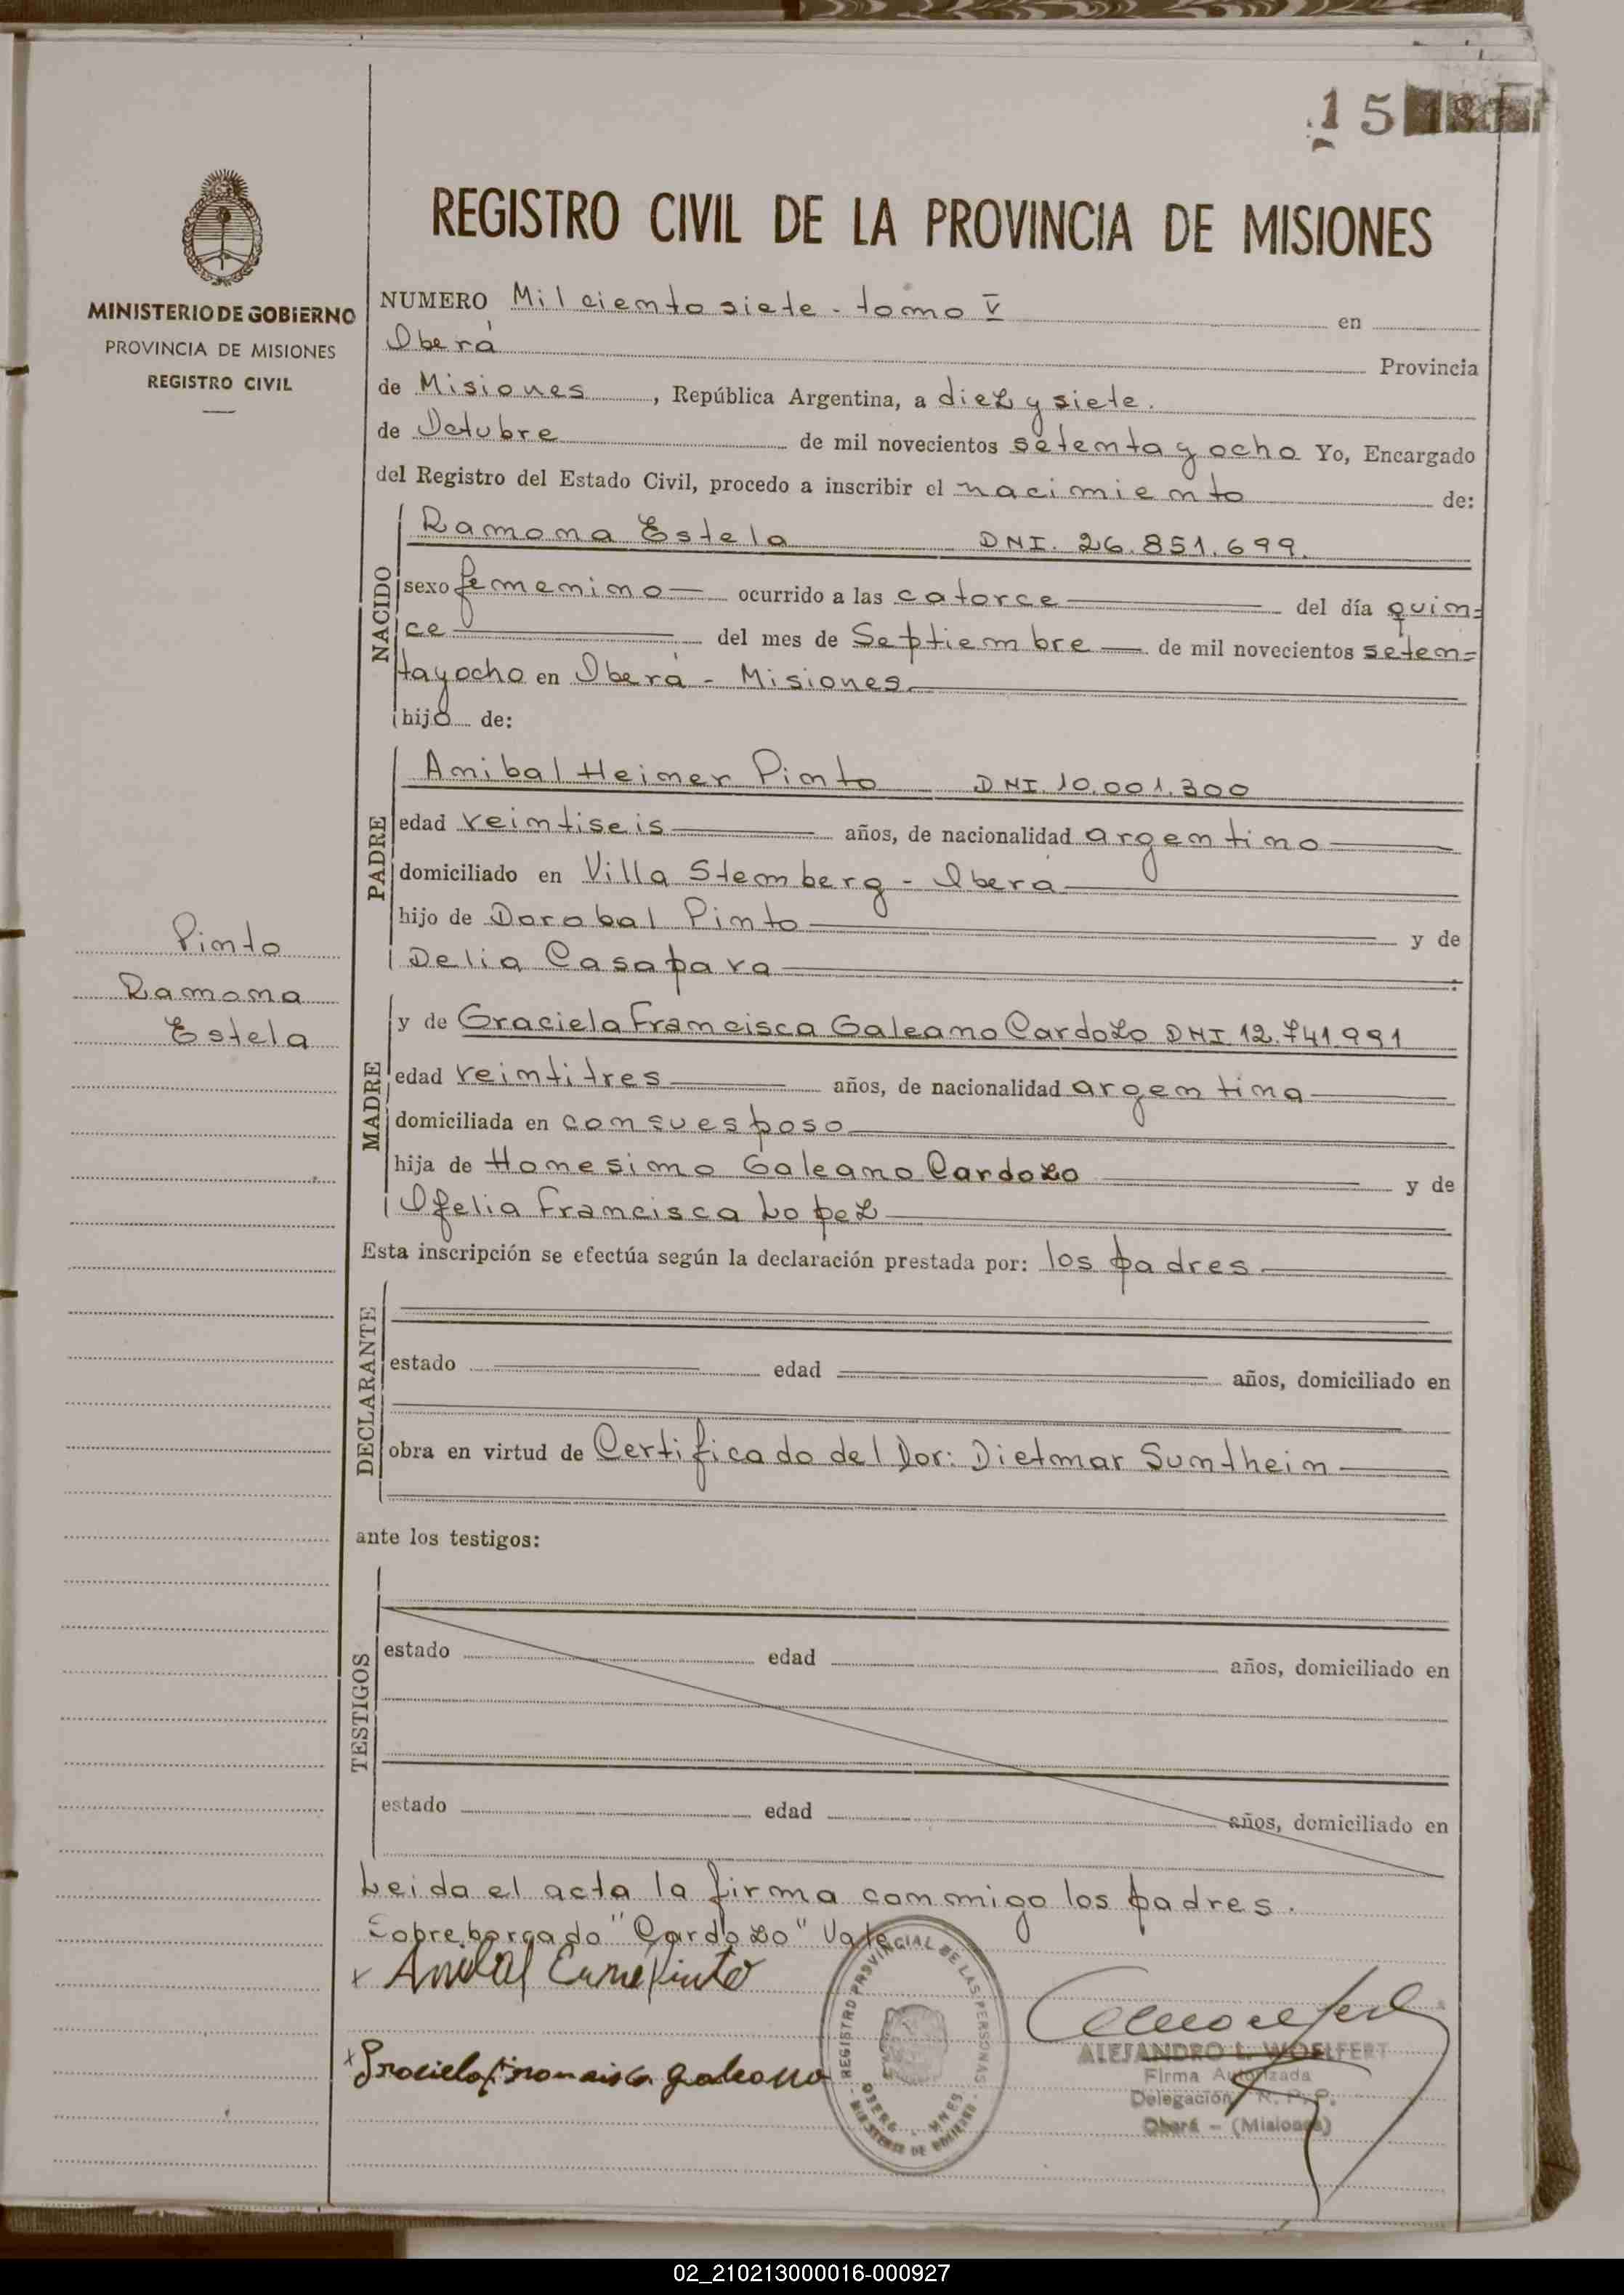 15
REGISTRO CIVIL DE LA PROVINCIA DE MISIONES
MINISTERIO DE GOBIERNO
PROVINCIA DE MISIONES
REGISTRO CIVIL
NUMERO Mil ciento siete - tomo V en
Oberá Provincia
de Misiones, República Argentina, a diez y siete.
de Octubre de mil novecientos setenta y ocho Yo, Encargado
del Registro del Estado Civil, procedo a inscribir el nacimiento de:
NACIDO
Ramona Estela DNI. 26.851.699.
sexo femenino ocurrido a las catorce del día quin=
ce del mes de Septiembre de mil novecientos seten=
tayocho en Oberá - Misiones
hijo de:
PADRE
Anibal Heimer Pinto DNI. 10.001.300
edad veintiseis años, de nacionalidad argentino
domiciliado en Villa Stemberg - Oberá
hijo de Dorobal Pinto y de
Delia Casapara
Pinto
Ramona
Estela
MADRE
y de Graciela Francisca Galeano Cardozo DNI 12.741.991
edad veintitres años, de nacionalidad argentina
domiciliada en con su esposo
hija de Honesimo Galeano Cardozo y de
Ofelia Francisca Lopez
Esta inscripción se efectúa según la declaración prestada por: los padres
DECLARANTE
estado edad años, domiciliado en
obra en virtud de Certificado del Dor: Dietmar Sumthein
ante los testigos:
TESTIGOS
estado edad años, domiciliado en
estado edad años, domiciliado en
Leida el acta la firma conmigo los padres.
Sobreborgado "Cardozo" Vale
x Anibal Pinto
x Graciela Francisca galeano
REGISTRO PROVINCIAL DE LAS PERSONAS
OBERA - MNES
MINISTERIO DE GOBIERNO
ALEJANDRO L. WOELFERT
Firma Autorizada
Delegación R. P. P.
Oberá - (Misiones)
02_210213000016-000927